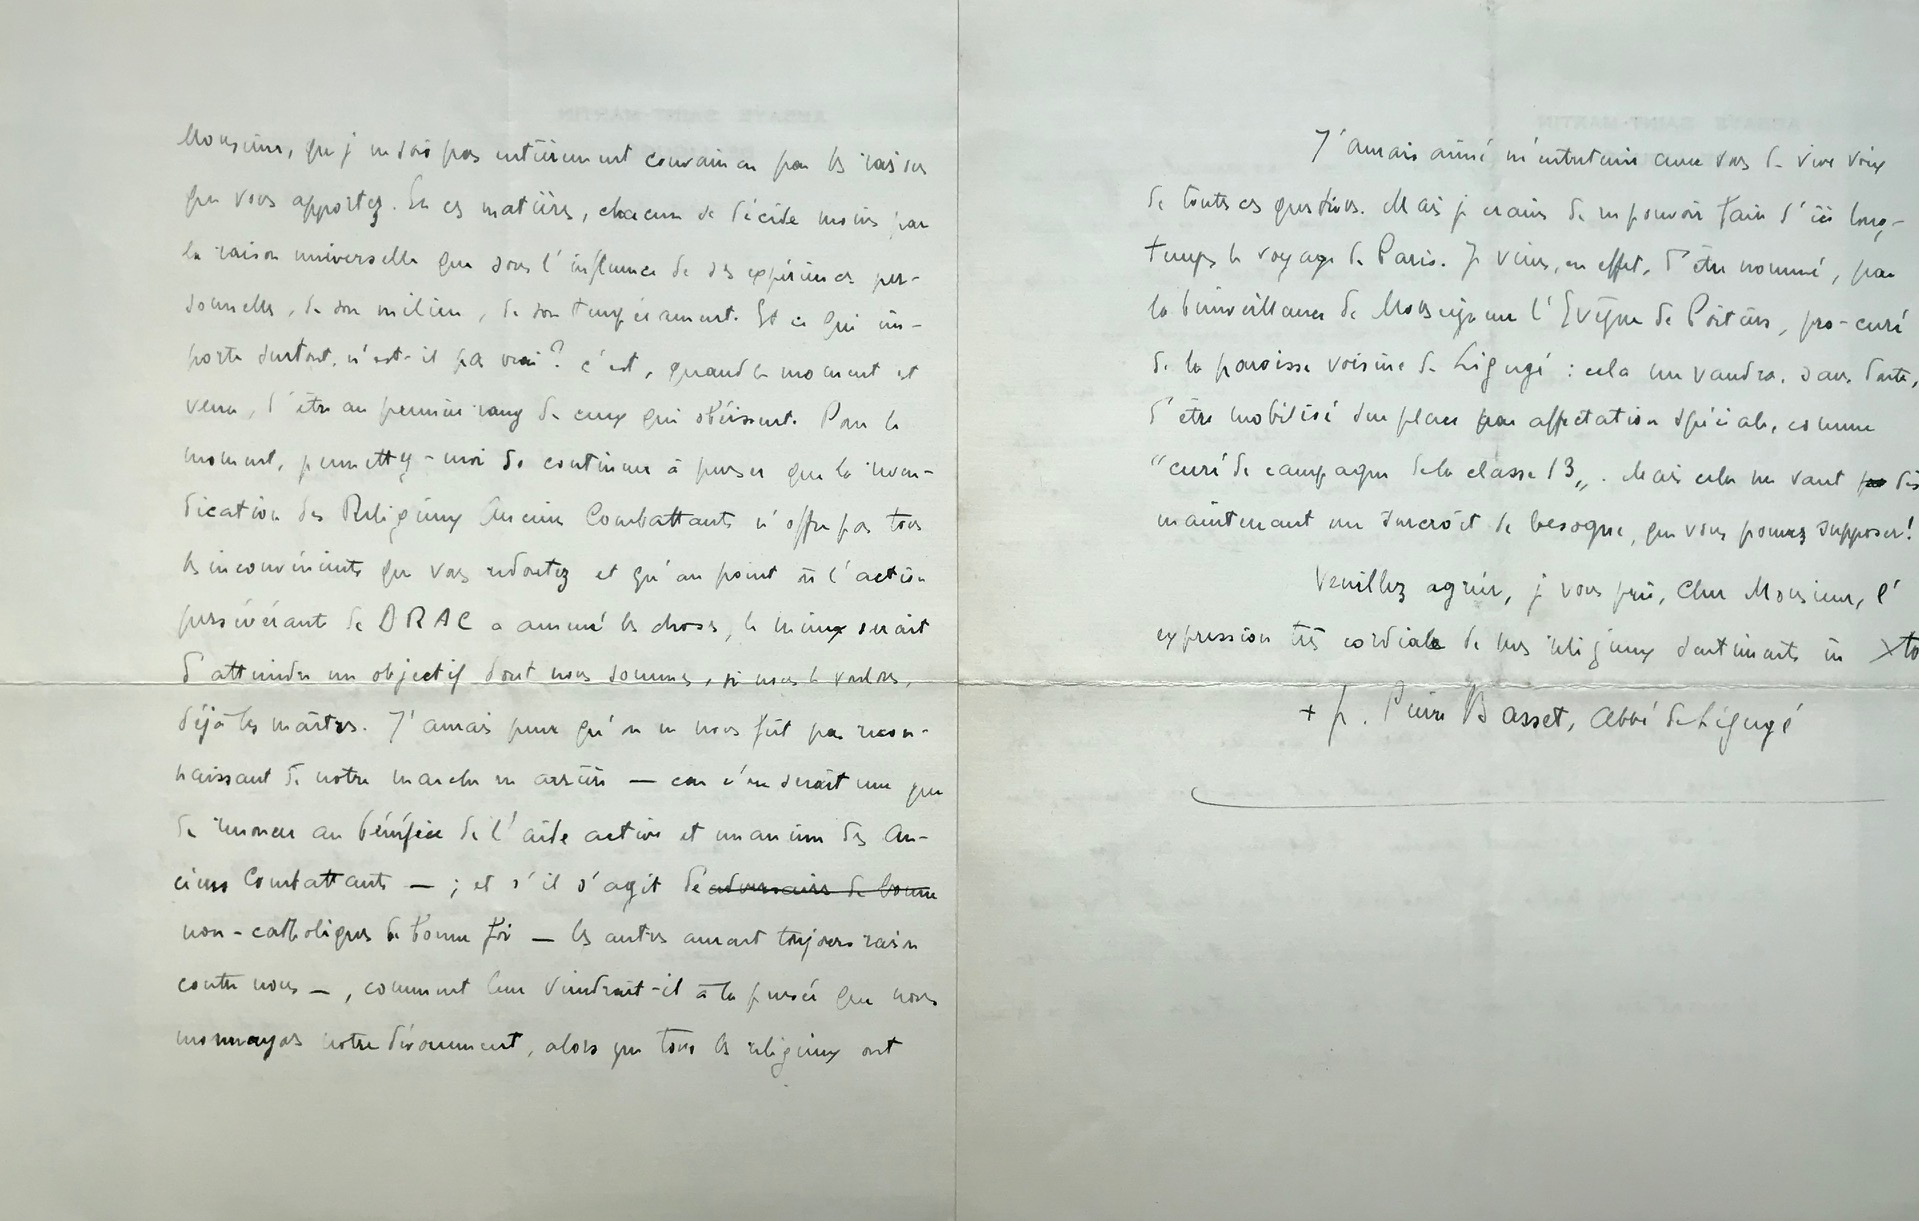 Monsieur, que je ne sois pas entièrement convaincu par les raisons
que vous apportez. En ces matières, chacun se décide moins par
la raison universelle que sous l'influence de ses expériences per-
sonnelles, de son milieu, de son tempérament. Et ce qui im-
porte surtout, n'est-il pas vrai ? c'est, quand le moment est
venu, d'être au premier rang de ceux qui obéissent. Pour le
moment, permettez-moi de continuer à penser que la reven-
dication des Religieux Anciens Combattants n'offre pas tous
les inconvénients que vous redoutez et qu'au point où l'action
persévérante de DRAC a amené les choses, le mieux serait
d'atteindre un objectif dont nous sommes, si nous le voulons,
déjà les maîtres. J'aurais peur qu'on ne nous fût pas recon-
naissant de notre marche en arrière — car c'en serait une que
de renoncer au bénéfice de l'aide active et unanime des An-
ciens Combattants — ; et s'il s'agit de adversaires de bonne
non-catholiques de bonne foi — les autres auront toujours raison
contre nous —, comment leur viendrait-il à la pensée que nous
monnayons notre dévouement, alors que tous les religieux ont
ABBAYE SAINT-MARTIN
J'aurais aimé m'entretenir avec vous de vive voix
de toutes ces questions. Mais je crains de ne pouvoir faire d'ici long-
temps le voyage de Paris. Je viens, en effet, d'être nommé, par
la bienveillance de Monseigneur l'Evêque de Poitiers, pro-curé
de la paroisse voisine de Ligugé : cela me vaudra, sans doute,
d'être mobilisé sur place par affectation spéciale, comme
"curé de campagne de la classe 13". Mais cela me vaut dès
maintenant un surcroît de besogne, que vous pouvez supposer !
Veuillez agréer, je vous prie, Cher Monsieur, l'
expression très cordiale de mes religieux sentiments in Xto
+ fr. Pierre Basset, Abbé de Ligugé
ABBAYE SAINT-MARTIN